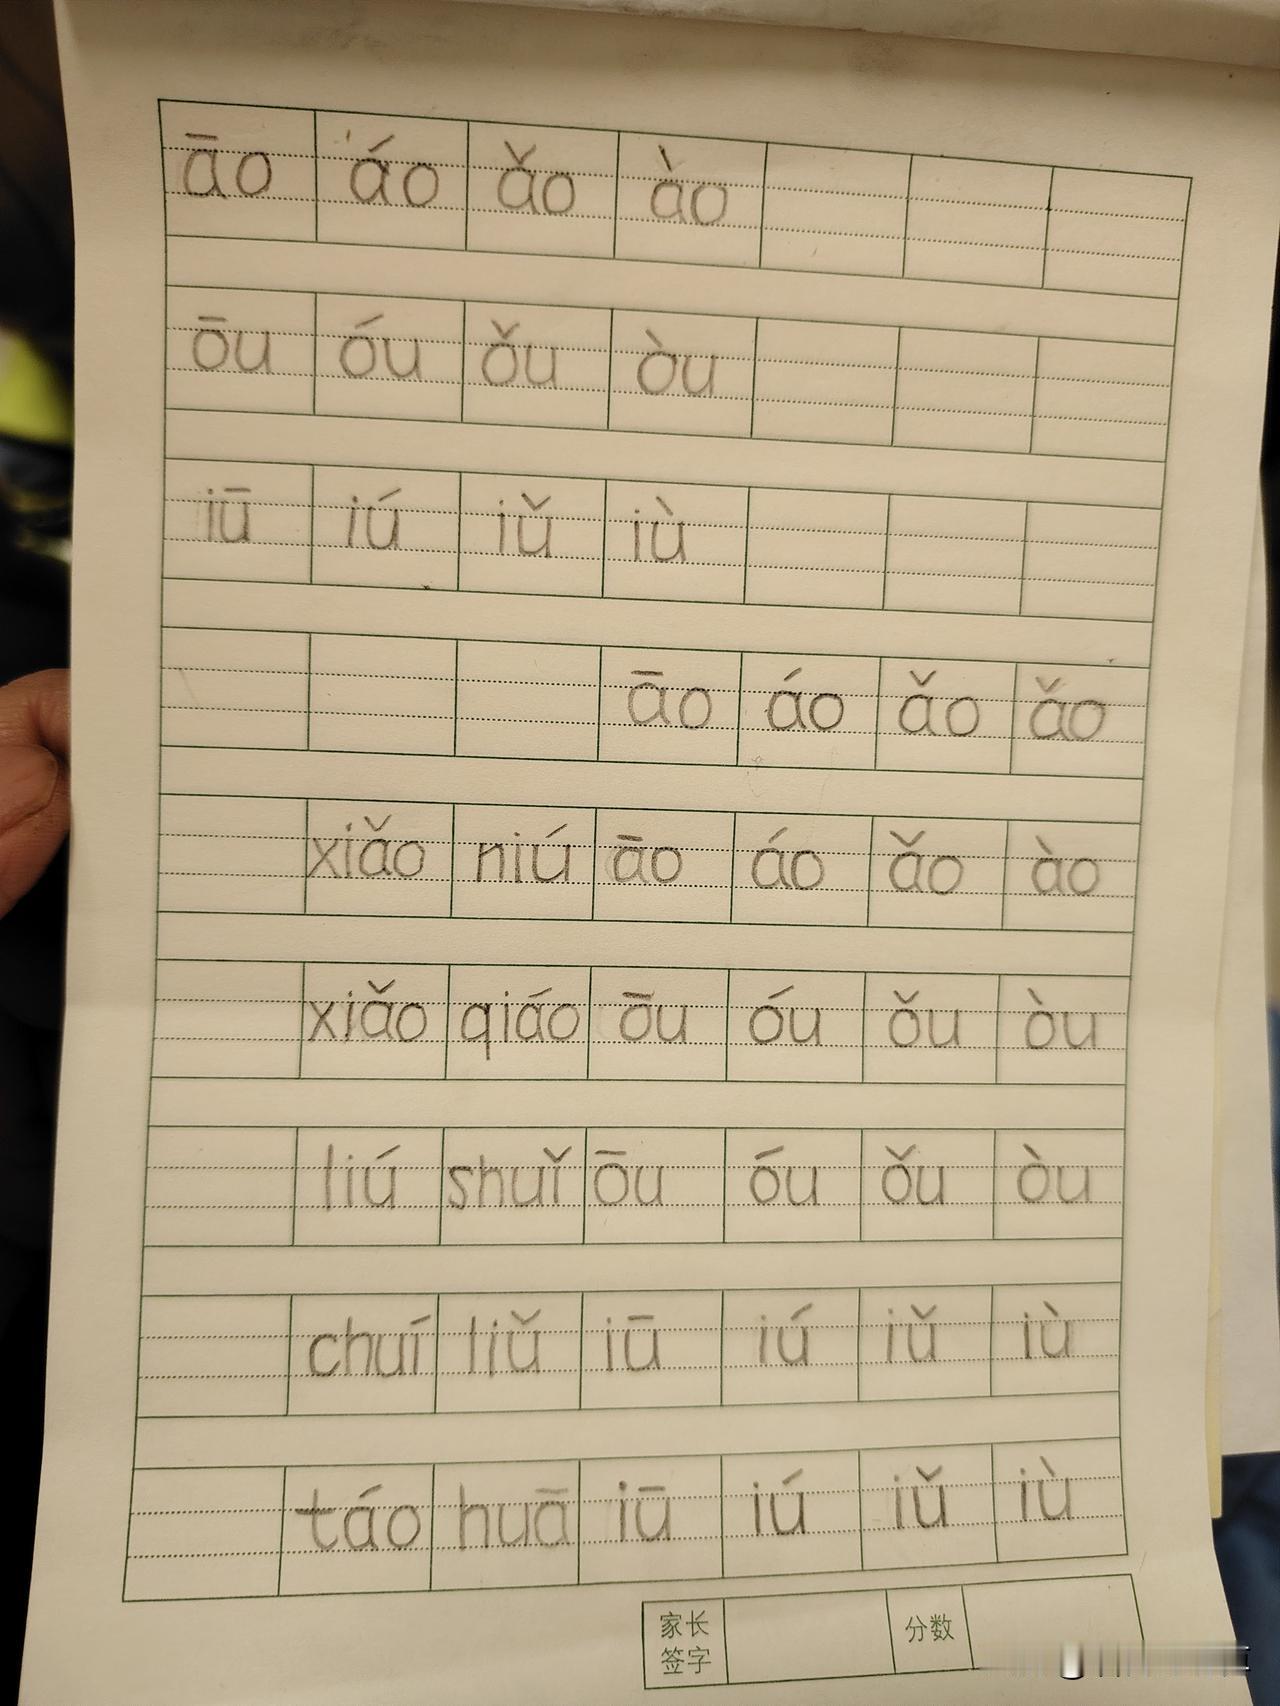 āo áo ǎo ào
ōu óu ǒu òu
iū iú iǔ iù
āo áo ǎo ǎo
xiǎo niú āo áo ǎo ào
xiǎo qiáo ōu óu ǒu òu
liú shuǐ ōu óu ǒu òu
chuí liǔ iū iú iǔ iù
táo huā iū iú iǔ iù
家长 分数
签字